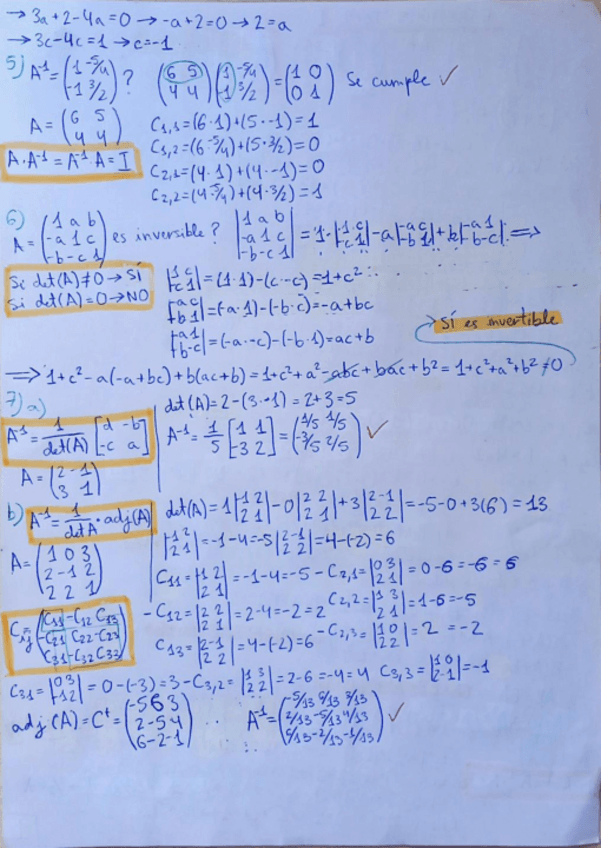 → 3a+2-4a=0 → -a+2=0 → 2=a
→ 3c-4c=1 → c=-1
5) A⁻¹ = (1 -5/4 / -1 3/2) ? (6 5 / 4 4)(1 -5/4 / -1 3/2) = (1 0 / 0 1) Se cumple ✓
A = (6 5 / 4 4) C1,1=(6·1)+(5·-1)=1
C1,2=(6·-5/4)+(5·3/2)=0
A·A⁻¹=A⁻¹·A=I C2,1=(4·1)+(4·-1)=0
C2,2=(4·-5/4)+(4·3/2)=1
6) A = (1 a b / -a 1 c / -b -c 1) es inversible? |1 a b / -a 1 c / -b -c 1| = 1·|1 c / -c 1| -a|-a c / -b 1| +b|-a 1 / -b -c| ⇒
Si det(A)≠0 → SÍ |1 c / -c 1| = (1·1)-(c·-c)=1+c²
Si det(A)=0 → NO |-a c / -b 1| = (-a·1)-(-b·c)=-a+bc
|-a 1 / -b -c| = (-a·-c)-(-b·1)=ac+b → SÍ es invertible
⇒ 1+c²-a(-a+bc)+b(ac+b)=1+c²+a²-abc+bac+b²=1+c²+a²+b²≠0
7) a) det(A)=2-(3·-1)=2+3=5
A⁻¹ = 1/det(A) [d -b / -c a] A⁻¹ = 1/5 [1 1 / -3 2] = (1/5 1/5 / -3/5 2/5) ✓
A = (2 -1 / 3 1)
b) A⁻¹ = 1/det A · adj(A) det(A)=1|-1 2 / 2 1| -0|2 2 / 2 1| +3|2 -1 / 2 2| =-5-0+3(6)=13
|-1 2 / 2 1| =-1-4=-5 |2 -1 / 2 2| =4-(-2)=6
A = (1 0 3 / 2 -1 2 / 2 2 1) C11=|-1 2 / 2 1| =-1-4=-5 -C2,1=|0 3 / 2 1| =0-6=-6=6
-C12=|2 2 / 2 1| =2-4=-2=2 C2,2=|1 3 / 2 1| =1-6=-5
Cij=(C11 -C12 C13 / -C21 C22 -C23 / C31 -C32 C33) C13=|2 -1 / 2 2| =4-(-2)=6 -C2,3=|1 0 / 2 2| =2=-2
C31=|0 3 / -1 2| =0-(-3)=3 -C3,2=|1 3 / 2 2| =2-6=-4=4 C3,3=|1 0 / 2 -1| =-1
adj(A)=Cᵗ=(-5 6 3 / 2 -5 4 / 6 -2 -1) A⁻¹=(-5/13 6/13 3/13 / 2/13 -5/13 4/13 / 6/13 -2/13 -1/13) ✓